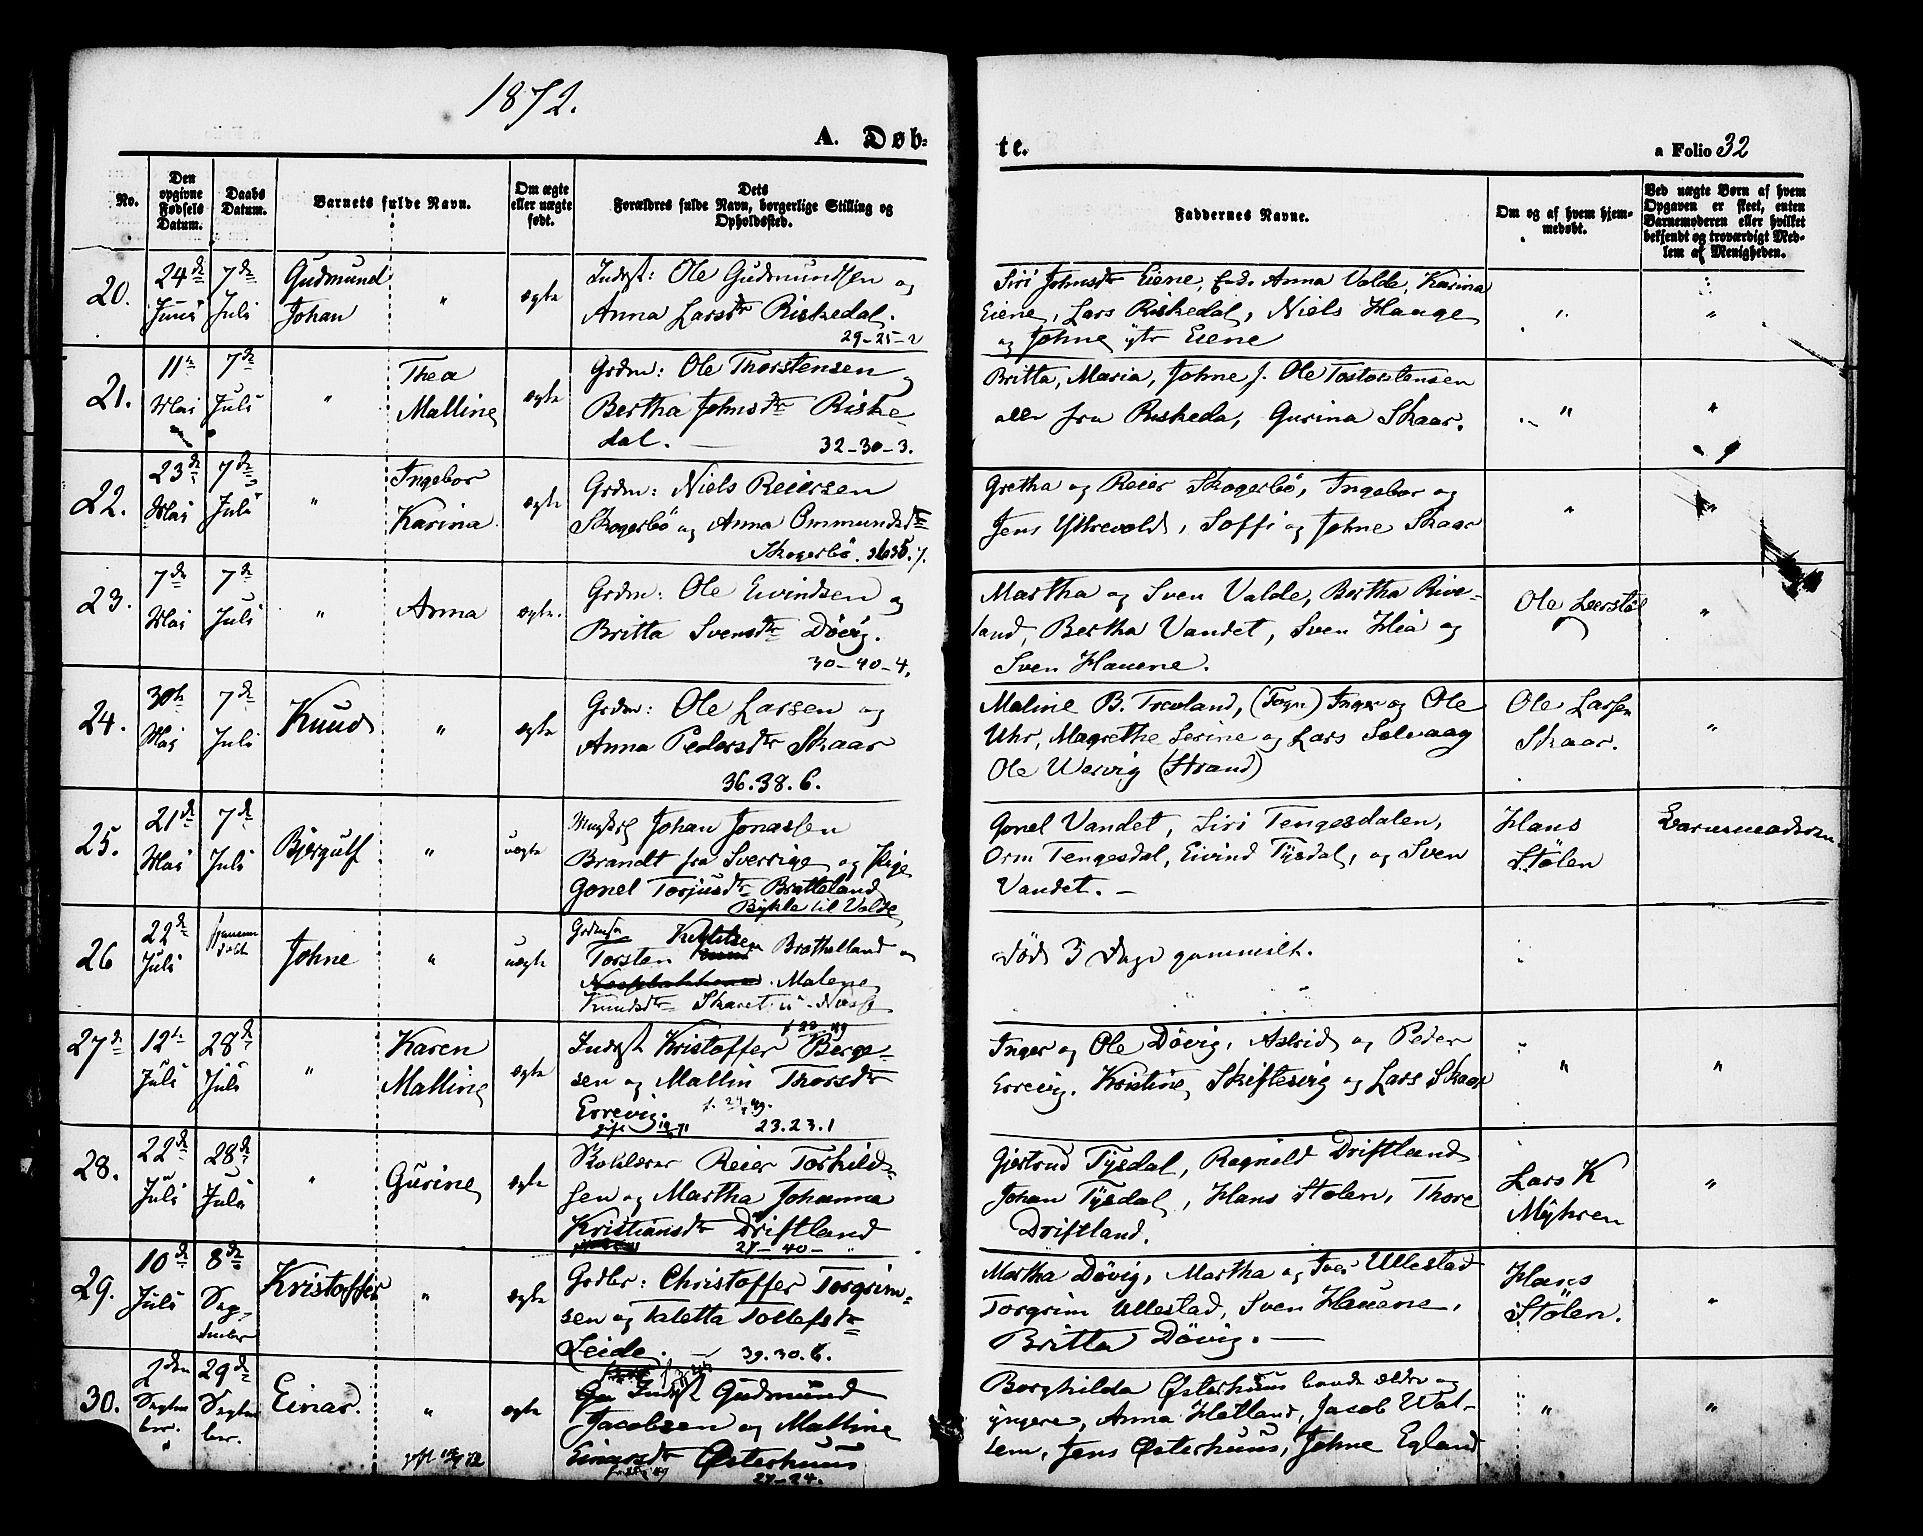 1872.
A. Døb-
te.
a Folio 32
No.
Den opgivne Fødsels Datum.
Daabs Datum.
Barnets fulde Navn.
Om ægte eller uægte født.
Dets Forældres fulde Navn, borgerlige Stilling og Opholdssted.
Faddernes Navne.
Om og af hvem hjem-
medøbt.
Ved uægte Børn af hvem
Opgaven er skeet, enten
Barnemoderen eller hvilket
bekjendt og troværdigt Med-
lem af Menigheden.
20. 24de Juni 7de Juli Gudmund Johan " ægte
Indst: Ole Gudmundsen og
Anna Larsdtr Riskedal.
29-25-2
Siri Johnsdtr Eiene, Anna Valde, Karina
Eiene, Lars Riskedal, Niels Hauge
og Johne Eiene
21. 11te Mai 7de Juli " Thea Malline ægte
Grdm: Ole Thorstensen og
Bertha Johnsdtr Riske-
dal. — 32-30-3.
Britta, Maria, Johne, Ole Tostorstensen
alle fra Riskeda, Gurina Skaar.
22. 23de Mai 7de Juli " Ingebor Karina ægte
Grdm: Niels Reiersen
Skogerbö og Anna Ommundsdtr
Skogerbö.
Gretha og Reier Skogerbö, Ingebor og
Jens Ythrevold, Soffi og Johne Skaar
23. 7de Mai 7de Juli " Anna ægte.
Grdm: Ole Eivindsen og
Britta Svensdtr Dövig.
30-40-4.
Martha og Sven Valde, Bertha Rive-
land, Bertha Vandet, Sven Hia og
Sven Hauene.
Ole Leerstöl
24. 30te Mai 7de Juli Knud " ægte
Grdm: Ole Larsen og
Anna Pedersdtr Skaar
36.38.6.
Maline B. Treoland, (Fogn) Inger og Ole
Uhr, Magrethe Serine og Lars Solvaag
Ole Wervig (Strand)
Ole Larsen
Skaar.
25. 21de Mai 7de Juli Bjergulf " uægte
Johan Jonassen
Brandt fra Sverrige og Pige
Gonel Torjusdtr Bratteland
Bykle til Valde
Gonel Vandet, Siri Tengesdalen,
Orm Tengesdal, Eivind Tysdal, og Sven
Vandet. —
Hans
Stölen
Barnemoderen
26 22de Juli Johne " uægte
Torsten Brathelland og
Malene
Knudsdtr Skaret
död 3 Dage gammelt.
27de 12te Juli 28de Juli " Karen Malline ægte
Indst Kristoffer Berge-
sen og Mallin Thorsdtr
Errevig.
23.23.1
Inger og Ole Dövig, Astrid og Peder
Errevig, Kristine Skiftesvig og Lars Skaar
28. 22de Juli 28de Juli " Gurine ægte
Skolelærer Reier Torkild-
sen og Martha Johanna
Kristiansdtr Driftland
27-40-
Gjertrud Tysdal, Ragnild Driftland
Johan Tysdal, Hans Stolen, Thore
Driftland.
Lars K
Myhren
29. 10de Juli 8de Sep-
tember Kristoffer " ægte
Grdbr: Christoffer Torgrim-
sen og Taletta Tollefsdtr
Leide. — 39.30.6.
Martha Dövig, Martha og Iver Ullestad
Torgrim Ullestad, Sven Hauene,
Britta Dövig. —
Hans
Stölen.
30. 2den Septem
ber. 29de Septem
ber. Einar. " ægte
Indst Gudmund
Jacobsen og Malline
Einarsdtr Østerhuus
27-24.
Borghilda Østerhuus baade ældre og
yngere, Anna Hetland, Jacob Wat-
sem, Jens Østerhuus, Johne Egland